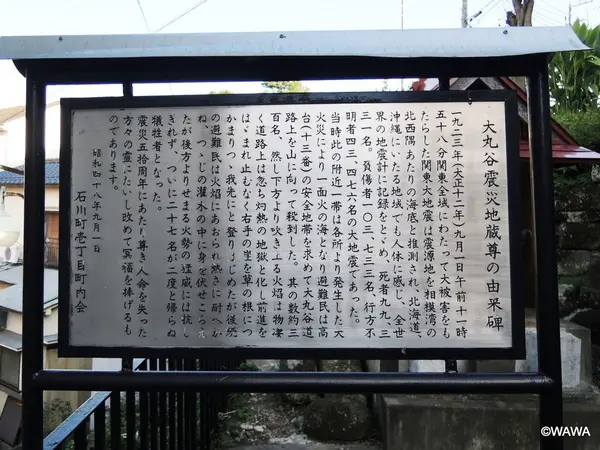 大丸谷震災地蔵尊の由来碑
一九二三年(大正十二年)九月一日午前十一時
五十八分関東全域にわたって大被害をも
たらした関東大地震は震源地を相模湾の
北西隅あたりの海底と推測され、北海道、
沖縄にいたる地域でも人体に感じ、全世
界の地震計に記録をとどめ、死者九九、三
三一名。負傷者一〇三、七三三名、行方不
明者四三、四七六名の大地震であった。
当時此の附近一帯は各所より発生した大
火災により一面火の海となり避難民は高
台(十三番)の安全地帯を求めて大丸谷道
路上を山に向って殺到した。其の数約三
百名、然し下方より吹き上る火焰は物凄
く道路上は忽ち灼熱の地獄と化し前進を
はゞまれ止むなく右手の崖を草の根につ
かまりつゝ我先にと登りはじめたが後続
の避難民は火焰にあおられ熱さに耐へか
ね、つゝじの灌木の中に身を伏せこらえ
たが後方よりせまる火勢の猛威には抗し
きれず、ついに二十七名が二度と帰らぬ
犠牲者となった。
震災五拾周年にあたり尊き人命を失った
方々の霊にたいし改めて冥福を捧げるも
のであります。
昭和四十八年九月一日
石川町壱丁目町内会
©WAWA